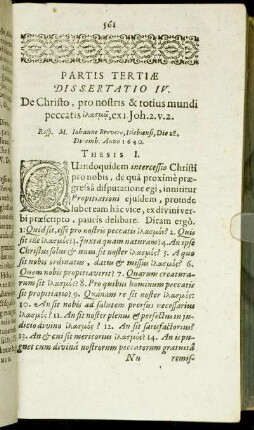 561
PARTIS TERTIÆ
DISSERTATIO IV.
De Christo, pro nostris & totius mundi
peccatis ἱλασμῷ, ex 1. Joh. 2. v. 2.
Resp. M. Iohanne Brevero, Islebiensi, Die 28.
Decemb. Anno 1640.
THESIS I.
QUandoquidem intercessio Christi
pro nobis, de quâ proximè præ-
gressâ disputatione egi, innititur
Propitiationi ejusdem, pronde
lubet eam hâc vice, ex divini ver-
bi præscripto, paucis delibare. Dicam ergò.
1. Quid sit, esse pro nostris peccatis ἱλασμόν? 2. Quis
sit ille ἱλασμός? 3. Juxta quam naturam? 4. An ipse
Christus solus & in se noster sit ἱλασμός? 5. A quo
sit nobis ordinatus, datus & missus ἱλασμός? 6.
Quem nobis propitiaverit? 7. Quarum creatura-
rum sit ἱλασμός? 8. Pro quibus hominum peccatis
sit propitiatio? 9. Quânam re sit noster ἱλασμός?
10. An sit nobis ad salutem prorsus necessarius
ἱλασμός? 11. An sit noster plenus & perfectus in ju-
dicio divino ἱλασμός? 12. An sit satisfactorius?
13. An & cui sit meritorius ἱλασμός? 14. An is pu-
gnet cum divinâ nostrorum peccatorum gratuitâ
Nn remis-